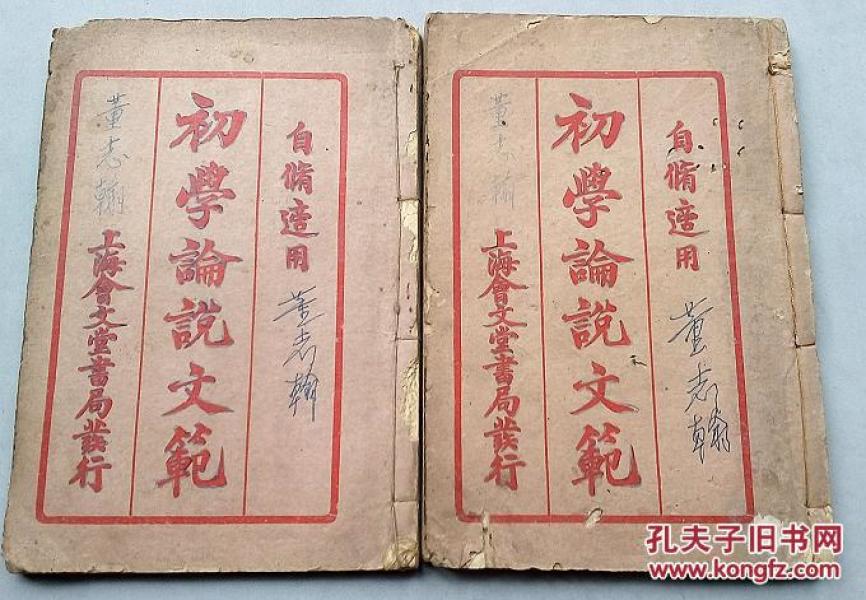 自脩適用
董志翰
初學論說文範
董志翰
上海會文堂書局發行
自脩適用
董志翰
初學論說文範
董志翰
上海會文堂書局發行
孔夫子旧书网
www.kongfz.com